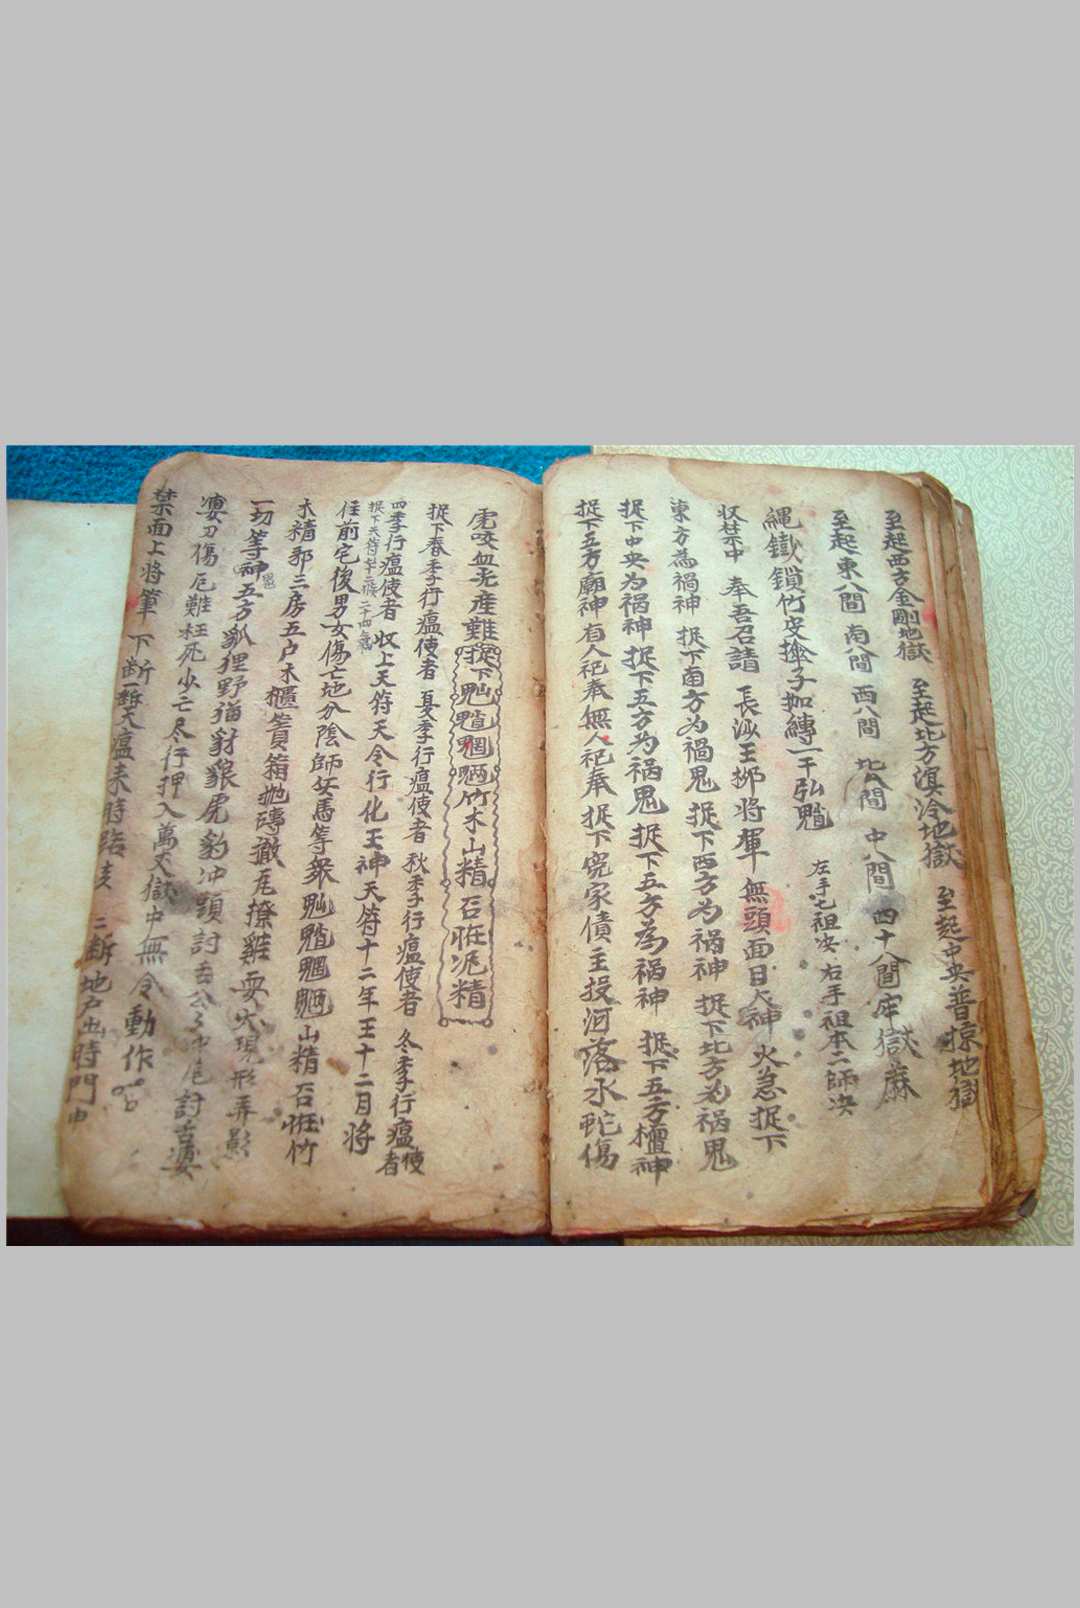 至起西方金剛地獄 至起北方溟泠地獄 至起中央普掠地獄
至起東八間 南八間 西八間 北八間 中八間 四十八間牢獄麻
繩鐵鎖竹 子枷 一千
左手七祖决 右手祖本二師决
收禁中 奉吾召請 長沙王 將軍 無頭面目大神 火急捉下
東方為禍神 捉下南方为禍鬼 捉下西方为禍神 捉下北方为祸鬼
捉下中央为祸神 捉下五方为祸鬼 捉下五方為祸神 捉下五方檀神
捉下五方廟神 有人祀奉無人祀奉 捉下寃家債主投河落水蛇傷
虎咬血光產難捉下 竹木山精石 精
捉下春季行瘟使者 夏季行瘟使者 秋季行瘟使者 冬季行瘟使者
四季行瘟使者 收上天符天令行化王神天符十二年王十二月將
捉下天符 二候二十四氣
住前宅後男女傷亡地分陰師 馬等衆 山精石 竹
木精邪三房五户木櫃 箱抛磚撤瓦撩雞耍火現形弄影
一切等神鬼五方狐狸野猫豺狼虎豹冲頭討 尾討吉
刀傷厄難枉死少亡尽行押入萬丈獄中無令動作
禁面上將筆 下断一断天瘟来時路 二断地户出時門